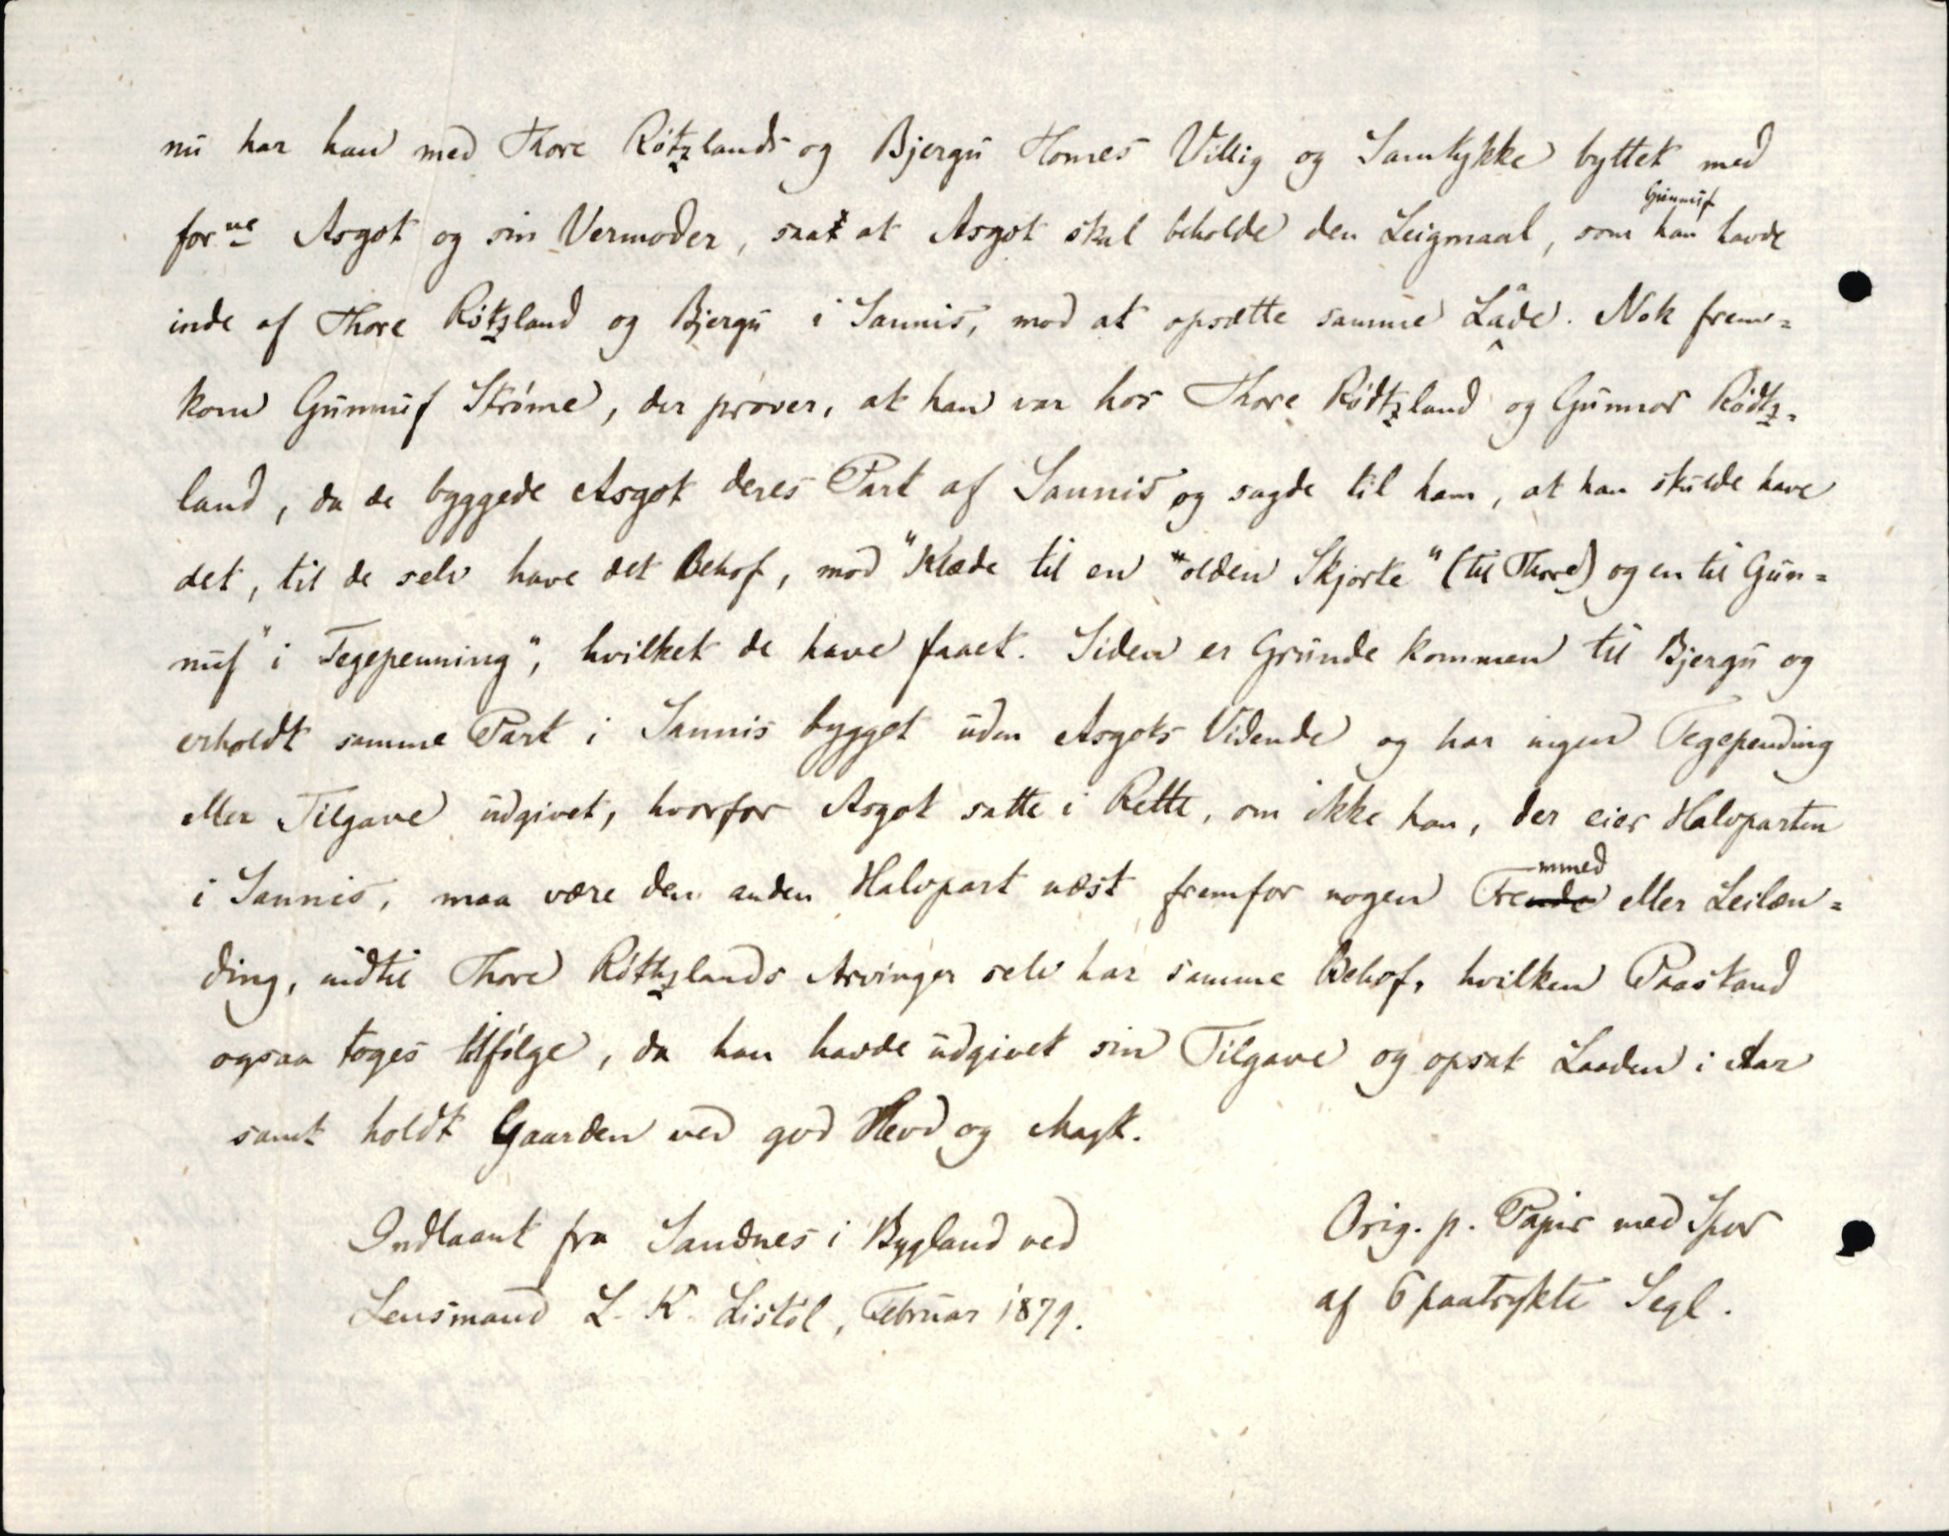 nu har han med Thore Røtzlands og Bjergu Homes Villig og Samtykke byttet med
forne Asgot og sin Vermoder, saa at Asgot skal beholde den Leigmaal, som han Gunnuf havde
inde af Thore Røtzland og Bjergu i Sannis, mod at opsætte samme Låde. Nok frem=
kom Gunnuf Strøme, der prøver, at han var hos Thore Rødtzland og Gunnor Rødtz=
land, da de byggede Asgot deres Part af Sannis og sagde til ham, at han skulde have
det, til de selv have det Behof, mod "Klæde til en *olden Skjorte" (til Thore) og en til Gun=
nuf "i Tegepenning", hvilket de have faaet. Siden er Grunde kommen til Bjergu og
erholdt samme Part i Sannis bygget uden Asgots Vidende og har ingen Tegepending
eller Tilgave udgivet, hvorfor Asgot satte i Rette, om ikke han, der eier Halvparten
i Sannis, maa være den anden Halvpart næst fremfor nogen Fremmed eller Leilæn=
ding, indtil Thore Røthzlands Arvinger selv har samme Behof, hvilken Paastand
ogsaa toges tilfølge, da han havde udgivet sin Tilgave og opsat Laaden i Aar
samt holdt Gaarden ved god Hevd og Magt.
Indlaant fra Sandnes i Bygland ved
Lensmand L. K. Listøl, Februar 1879.
Orig. p. Papir med Spor
af 6 paatrykte Segl.